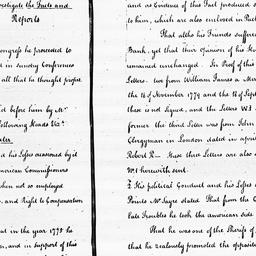 vestigate the Facts and
Reports
ongress he proceeded to
d in sundry Conferences
all that he thought proper
d before him by Mr
Following Heads Vizt
d his Losses occasioned by it
American Commissioners
when not so employed
and Right to Compensation
at in the year 1772 he
on, and in support of this
and as Evidence of this Fact produced
to him, which are also enclosed in
That altho his Friends suffered
Bank, yet that their opinion of his
remained unchanged. In Proof of this
Letters. two from William
the 16 of November 1774 and the
these is not signed, and the Letters
former the third Letter was from John
Clergyman in London dated in
Robert R— these three Letters are also
No 1 herewith sent.
2 His political Conduct and his Losses
Points Mr Sayre stated That from the
late Troubles he took the american side
That he was one of the Sheriffs of
that he zealously promoted the